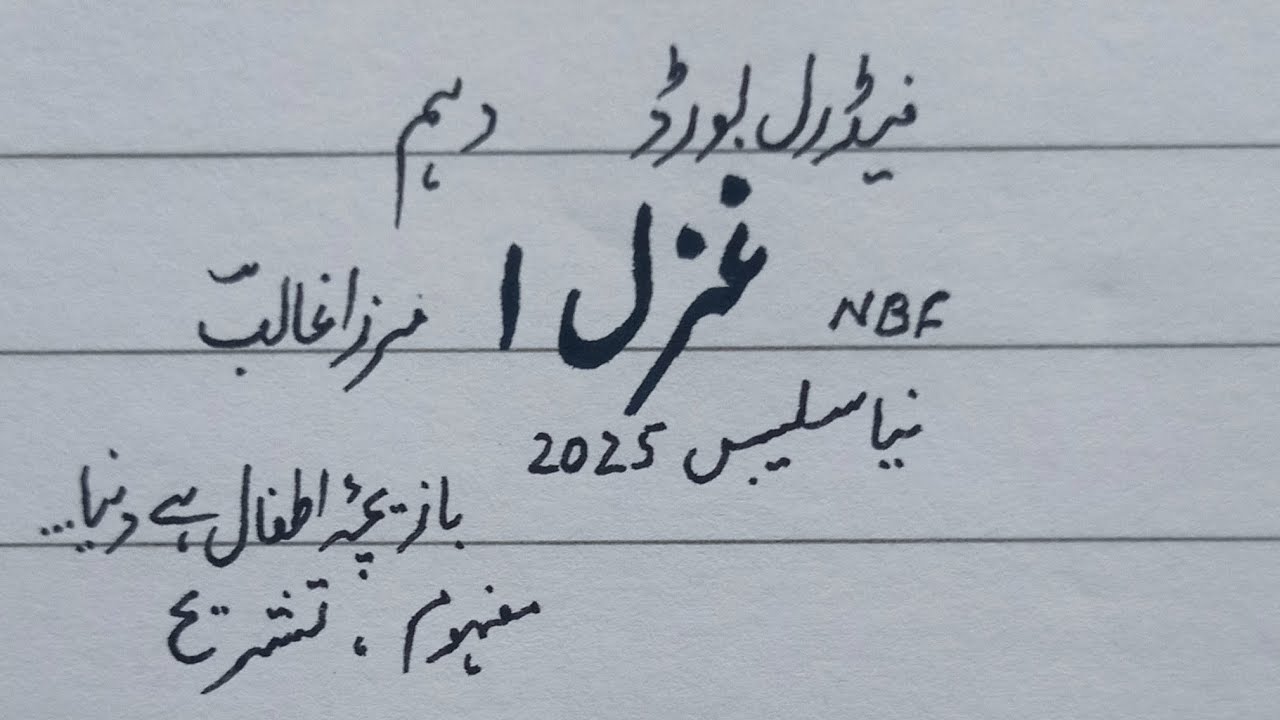 فیڈرل بورڈ دہم
NBF غزل ۱ مرزا غالبؔ
نیا سلیبس 2025
بازیچۂ اطفال ہے دنیا...
مفہوم ، تشریح